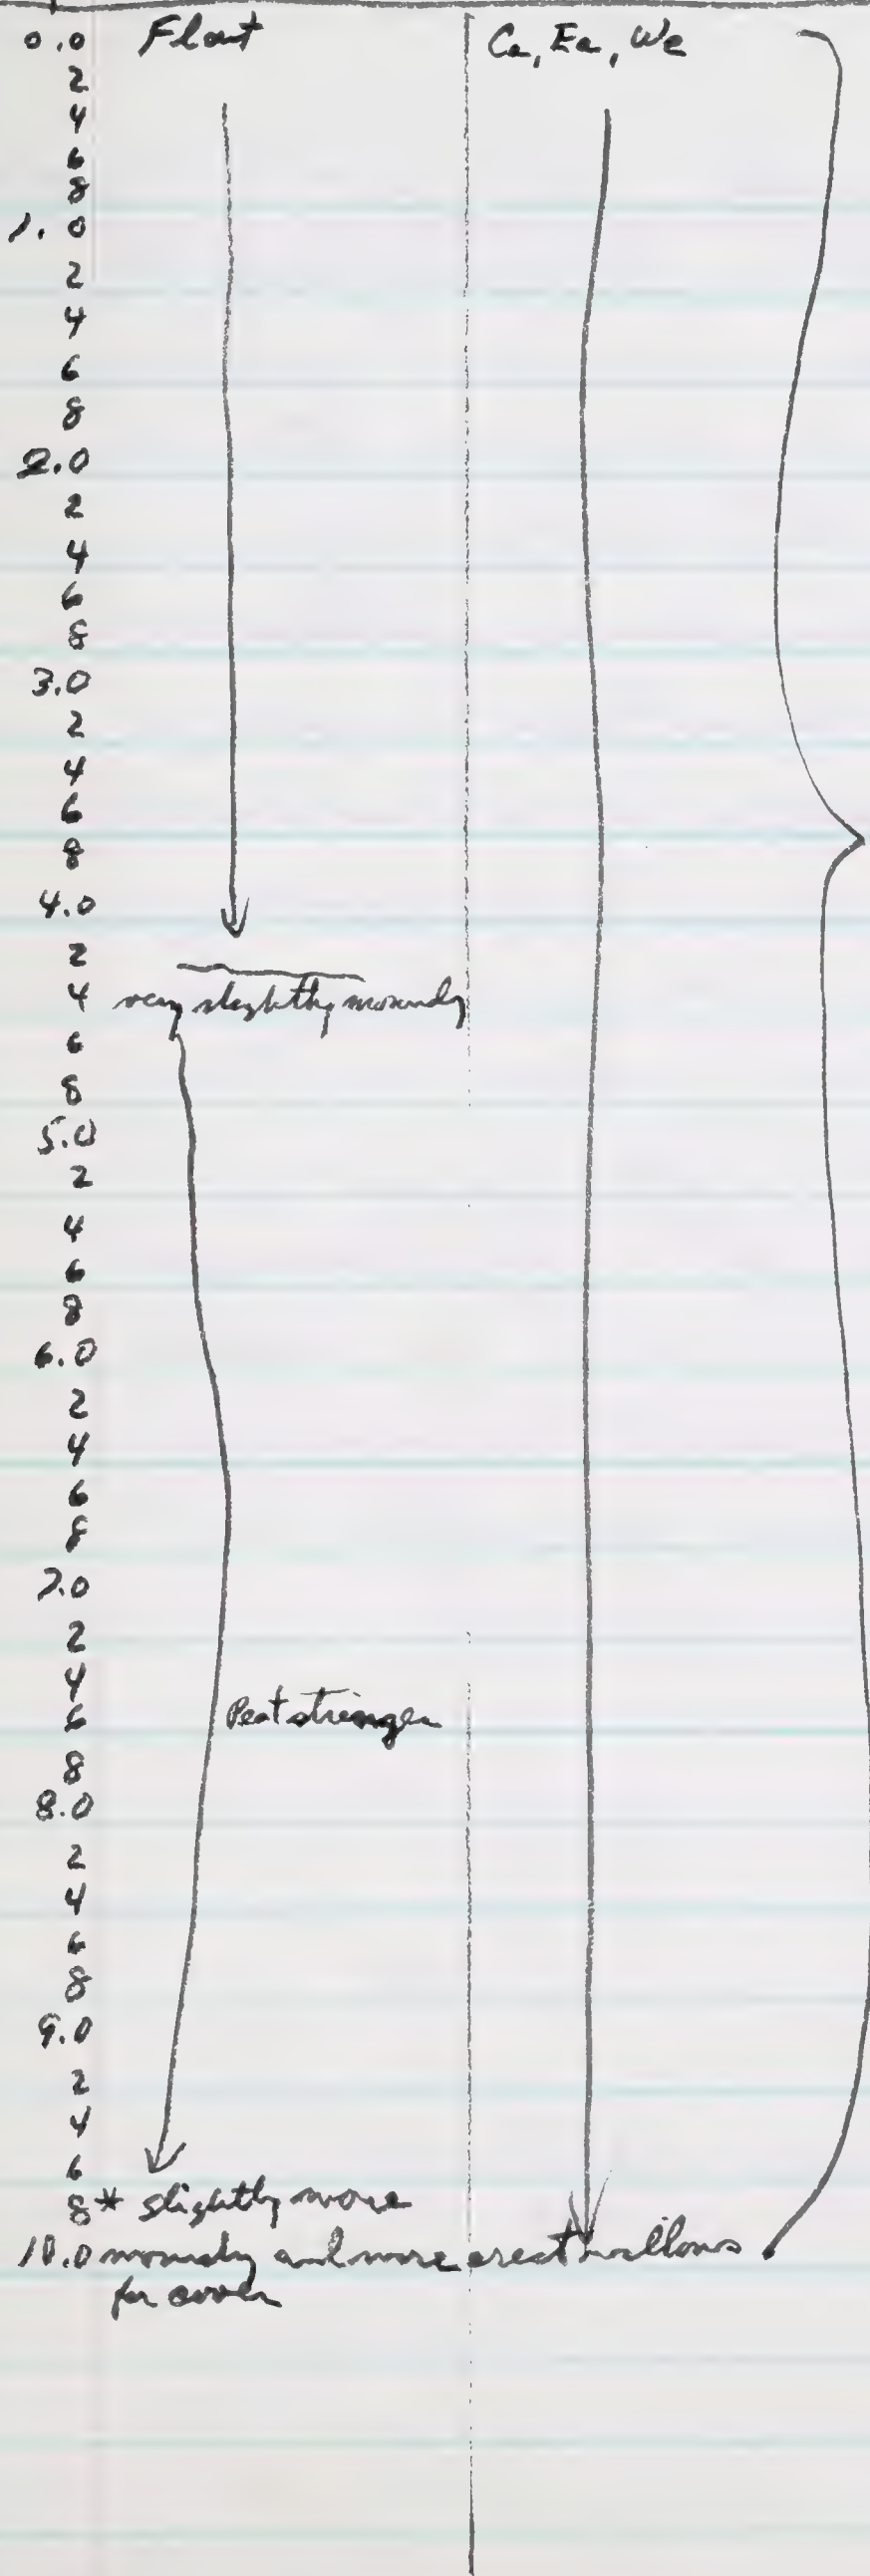 0.0 Float Ca, Ea, We
2
4
6
8
1.0
2
4
6
8
2.0
2
4
6
8
3.0
2
4
6
8
4.0
2
4 very slightly moundy
6
8
5.0
2
4
6
8
6.0
2
4
6
8
7.0
2
4
6 Peat stringer
8
8.0
2
4
6
8
9.0
2
4
6
8* slightly more
10.0 moundy and more erect willows
for cover